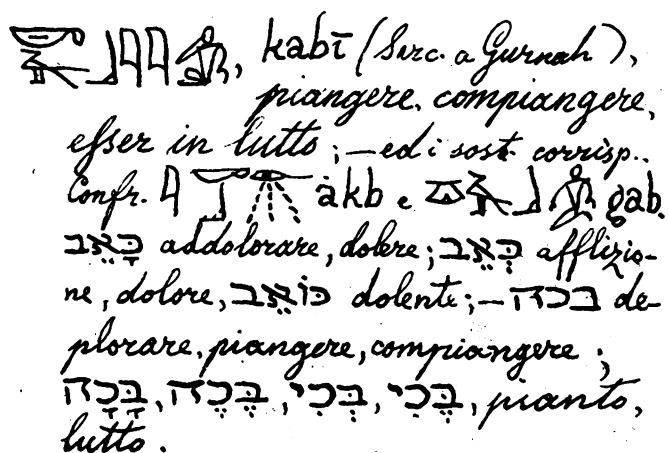 , kabī (Sarc. a Gurnah),
piangere, compiangere,
eſser in lutto; — ed i sost. corrisp..
Confr. àkb e gab.
כָּאֵב addolorare, dolere; כְּאֵב afflizio-
ne, dolore, כּוֹאֵב dolente; — בכה de-
plorare, piangere, compiangere;
בָּכָה, בֶּכֶה, בְּכִי, בֶּכִי, pianto,
lutto.